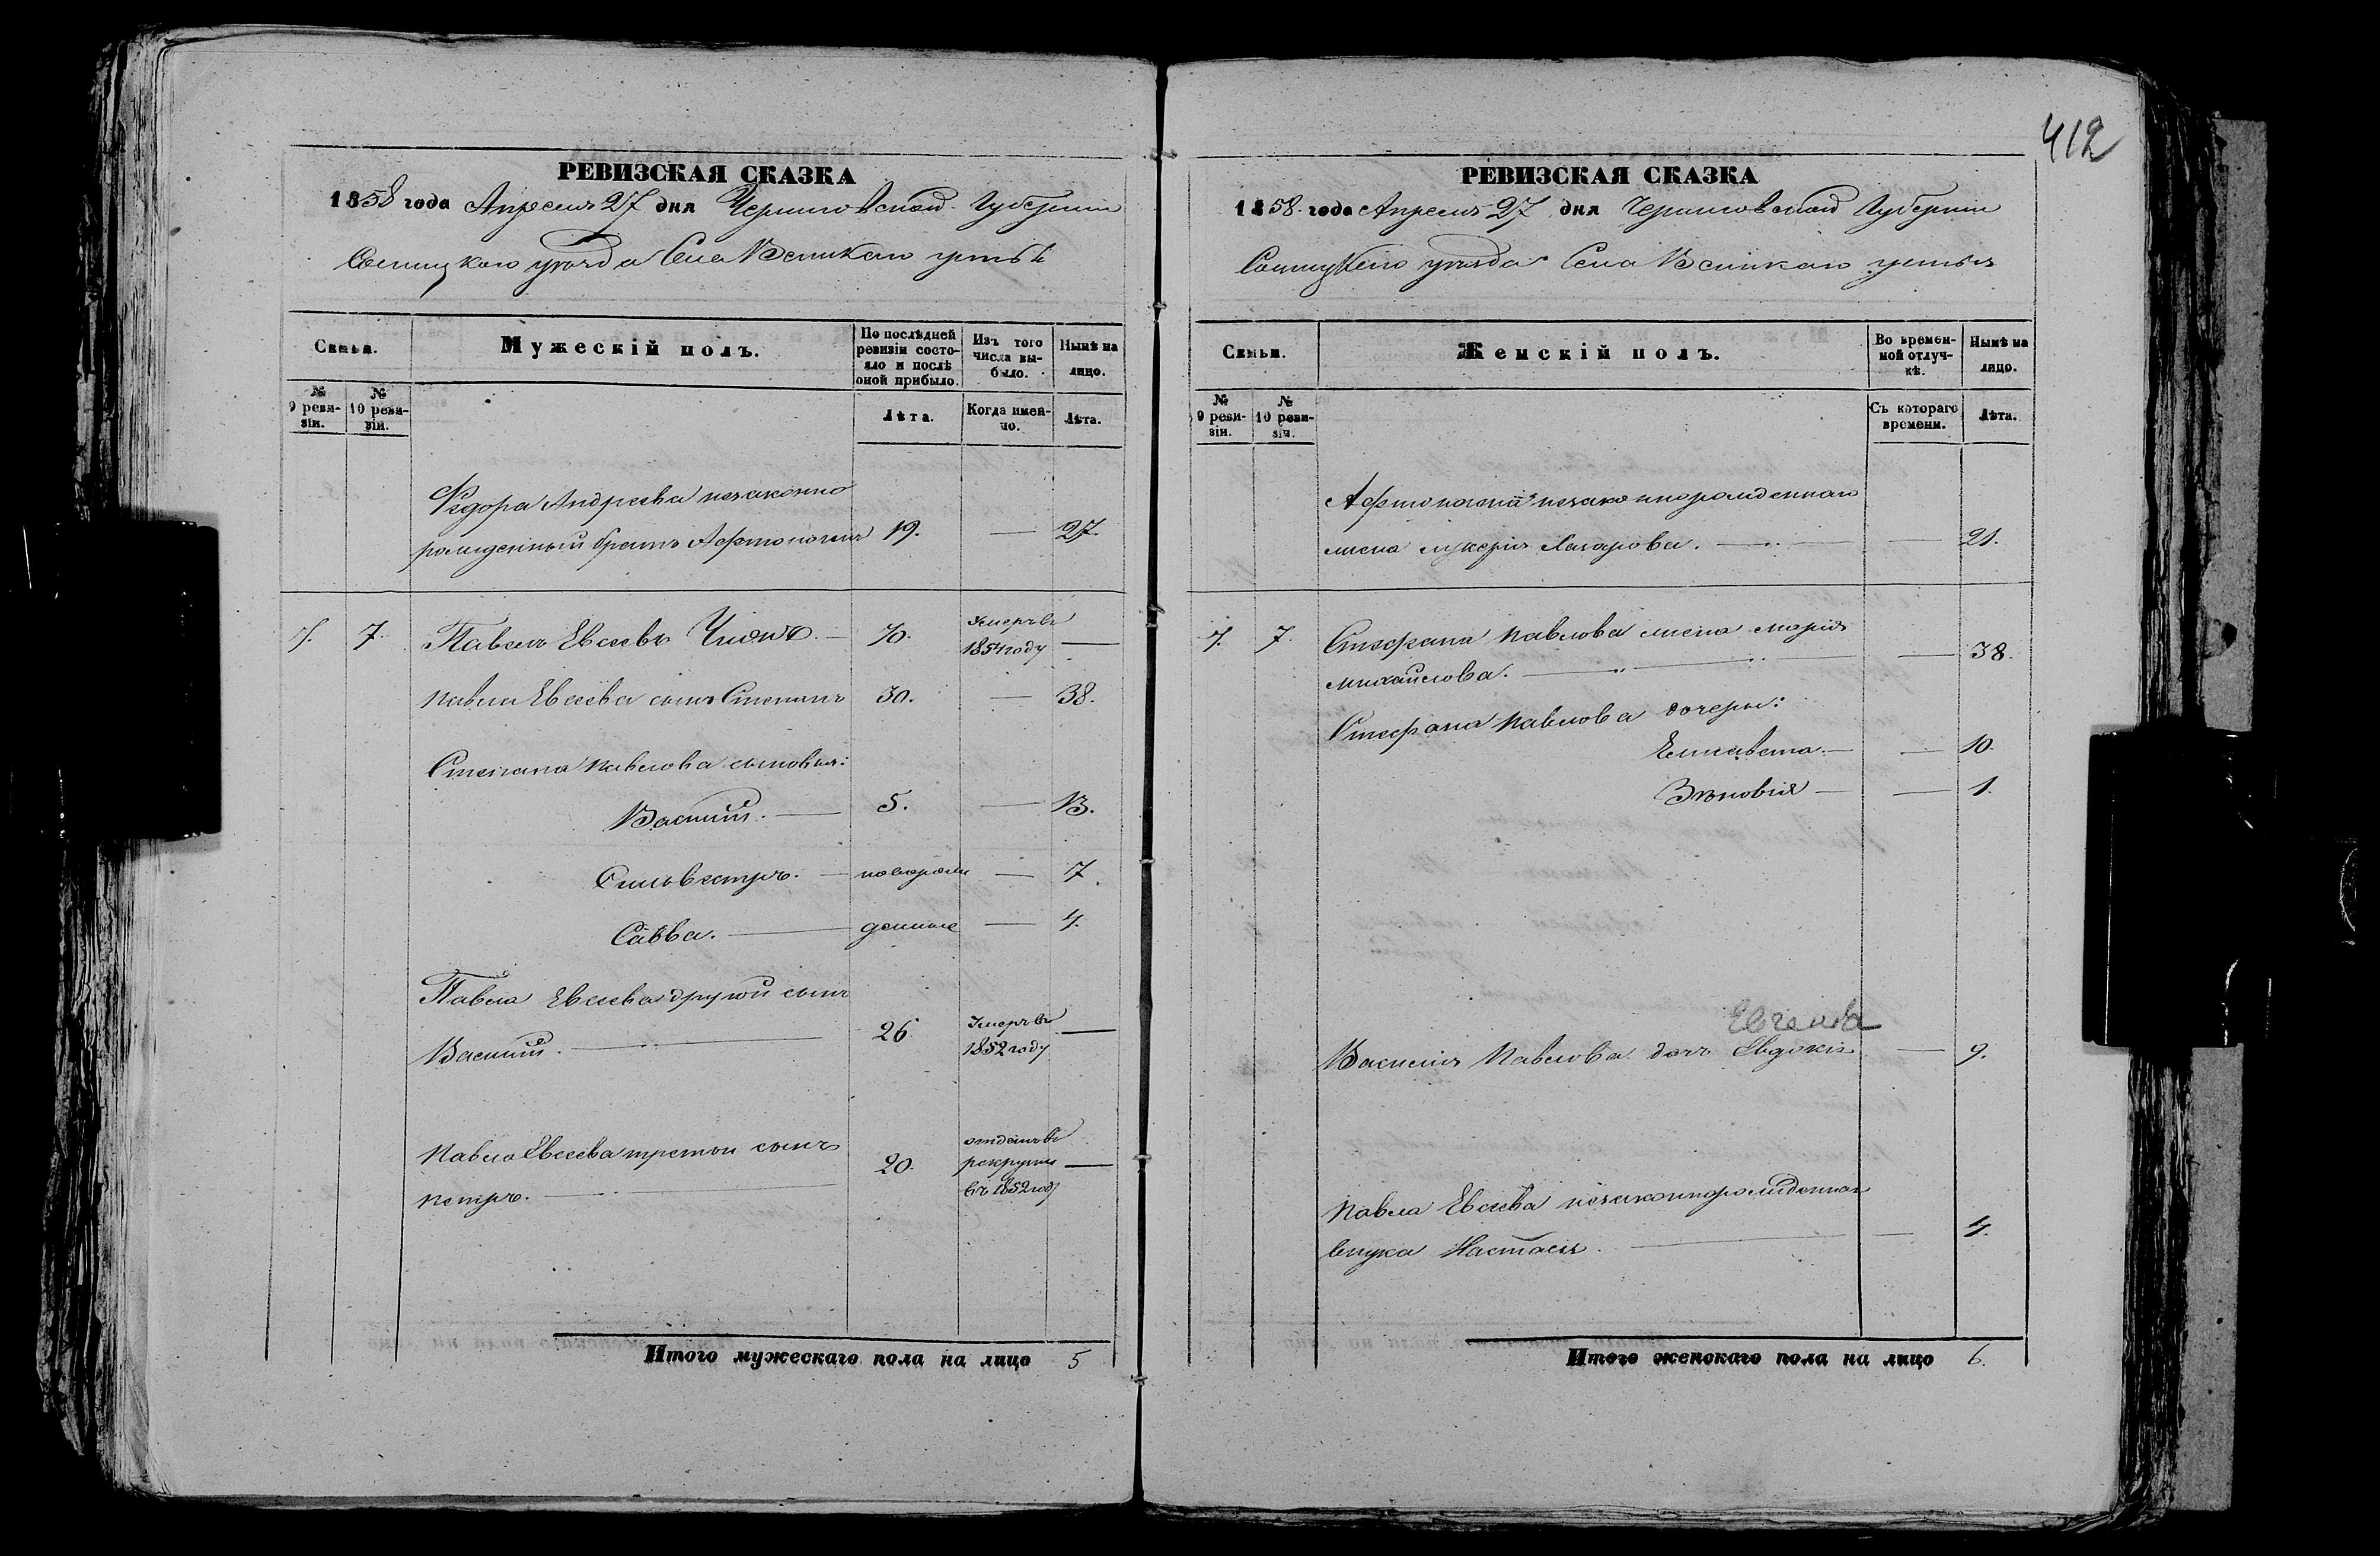 412
РЕВИЗСКАЯ СКАЗКА
1858 года Апреля 27 дня Черниговской Губернии
Сосницкого уезда Села Великаго устья
Семьи.
Мужескій полъ.
По послѣдней ревизіи состояло и послѣ оной прибыло.
Изъ того числа выбыло.
Нынѣ на лицо.
№ 9 ревизіи.
№ 10 ревизіи.
Лѣта.
Когда именно.
Лѣта.
Федора Андреева незаконно
рожденный братъ Афтоногенъ 19. — 27.
7. 7. Павелъ Евсеевъ — 70. Умеръ въ 1854 году —
Павла Евсеева сынъ Степанъ 30. — 38.
Степана Павлова сыновья:
Василий. — 5. — 13.
Сильвестръ. — новорож — 7.
Савва. — денные — 4.
Павла Евсеева другой сынъ
Василий. — 26. Умеръ въ 1852 году —
Павла Евсеева третой сынъ
Петръ. — 20. отданъ въ рекруты въ 1852 году —
Итого мужескаго пола на лицо 5
РЕВИЗСКАЯ СКАЗКА
1858. года Апреля 27 дня Черниговской Губернии
Сосницкого уезда Села Великаго устья
Семьи.
Женскій полъ.
Во временной отлучкѣ.
Нынѣ на лицо.
№ 9 ревизіи.
№ 10 ревизіи.
Съ котораго времени.
Лѣта.
Афтоногена незаконнорожденнаго
жена Лукерія Назарова. — — 21.
7. 7. Стефана Павлова жена Марія
Михайлова. — — 38.
Стефана Павлова дочери:
Елисавета. — — 10.
Зѣновія — — 1.
Евгенія
Василія Павлова дочь Евдокія — 9.
Павла Евсеева незаконнорожденная
внука Настасія. — — 4.
Итого женскаго пола на лицо 6.